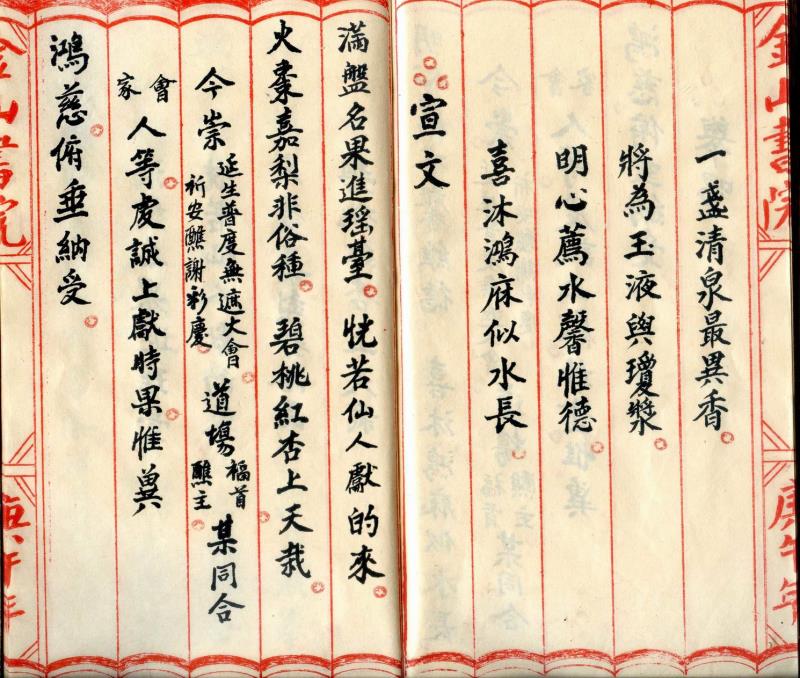 金山書院
庚午年
一盞清泉最異香
將為玉液與瓊漿
明心薦水馨惟德
喜沐鴻庥似水長
宣文
滿盤名果進瑤臺 恍若仙人獻的來
火棗嘉梨非俗種 碧桃紅杏上天栽
今崇 延生普度無遮大會 祈安醮謝彩慶 道場 福首 醮主 某同合
會 家 人等虔誠上獻時果惟冀
鴻慈俯垂納受
金山書院
庚午年